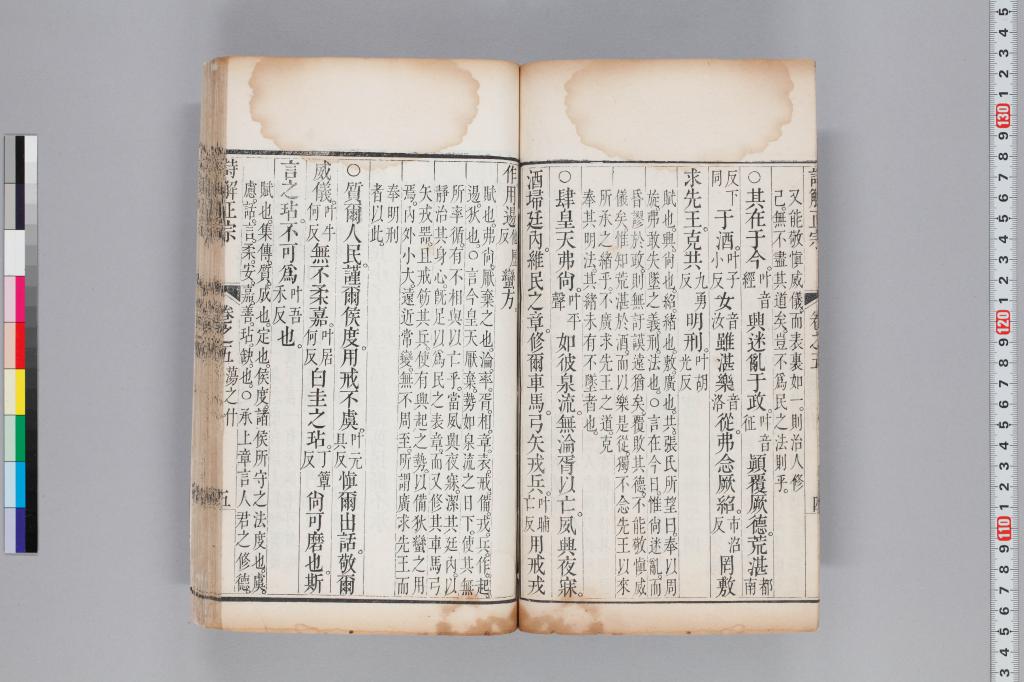 又能敬愼威儀。而表裏如一。則治人修
己。無不盡其道矣。豈不爲民之法則乎。
○其在于今。叶音經興迷亂于政。叶音征顚覆厥德。荒湛都南
反下同于酒。叶子小反女音汝雖湛樂音洛從。弗念厥紹。市沼反罔敷
求先王。克共九勇反明刑。叶胡光反
賦也。興。尙也。紹。緒也。敷。廣也。共。張氏所望日。奉以周
旋。弗敢失墜之義。刑。法也。○言在今日。惟尙迷亂。而
昏謬於政。則無訏謨遠猶矣。覆敗其德。不能敬愼威
儀矣。惟知荒湛於酒。而以樂是從。獨不念先王以來
所承之緒乎。不廣求先王之道。克
奉其明法。其緒未有不墜者也。
○肆皇天弗尙。叶平聲如彼泉流。無淪胥以亡。夙興夜寐。
洒埽廷內。維民之章。修爾車馬。弓矢戎兵。叶晡亡反用戒戎
作。用逷他歷反蠻方。
賦也。弗尙。厭棄之也。淪。率。胥。相。章。表。戒。備。戎。兵。作。起。
逷。狄也。○言今皇天厭棄。勢如泉流之日下。使其無
所率循。有不相與以亡乎。當夙興夜寐。潔其廷內。以
靜治其身心。旣足以爲民之表章。而又修其車馬弓
矢戎器。且戒飭其兵。使有興起之勢。以備狄蠻之用
焉。內外小大。遠近常變。無不周至。所謂廣求先王而
奉明刑
者以此。
○質爾人民。謹爾侯度。用戒不虞。叶元具反愼爾出話。敬爾
威儀。叶牛何反無不柔嘉。叶居何反白圭之玷。丁簟反尙可磨也。斯
言之玷。不可爲叶吾禾反也。
賦也。集傳質。成也。定也。侯度。諸侯所守之法度也。虞。
慮。話。言。柔。安。嘉。善。玷。缺也。○承上章言人君之修德。
詩解正宗 卷之五 蕩之什 五